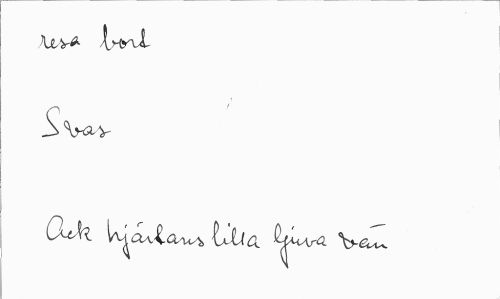 resa bort
Svas
Ack hjärtans lilla ljuva vän